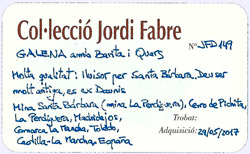 Col·lecció Jordi Fabre
GALENA amb Barita i Quars Nº JFD149
Molta qualitat! i bisor per Santa Bárbara, Deu ser
molt antiga, es ex Daunis
Mina Santa Bárbara (mina La Perdiguera), Cerro de Pichita,
La Perdiguera, Madridejos, Trobat:
Comarca La Mancha, Toledo, Adquisició: 29/05/2017
Castilla-La Mancha, España